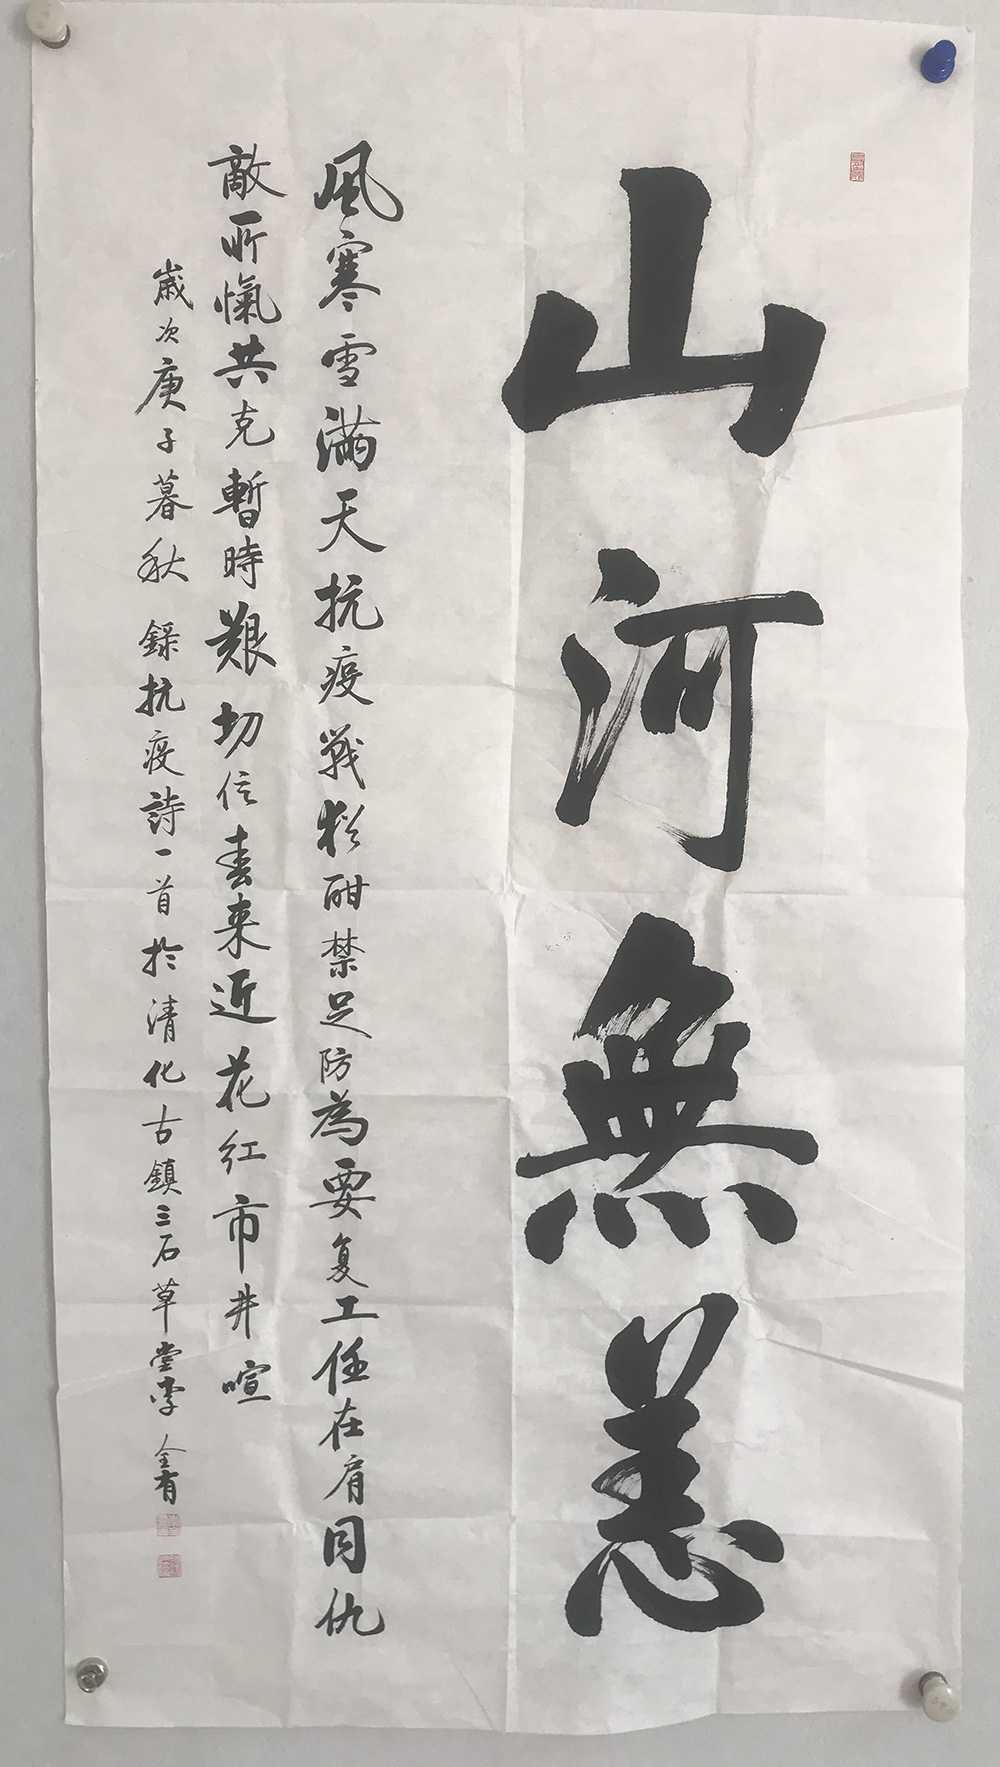 山河無恙
風寒雪滿天抗疫戰於酣禁足防為要复工任在肩同仇
敵所愾共克暫時艱切信春来近花红市井喧
歲次庚子暮秋錄抗疫詩一首於清化古鎮三石草堂李全有